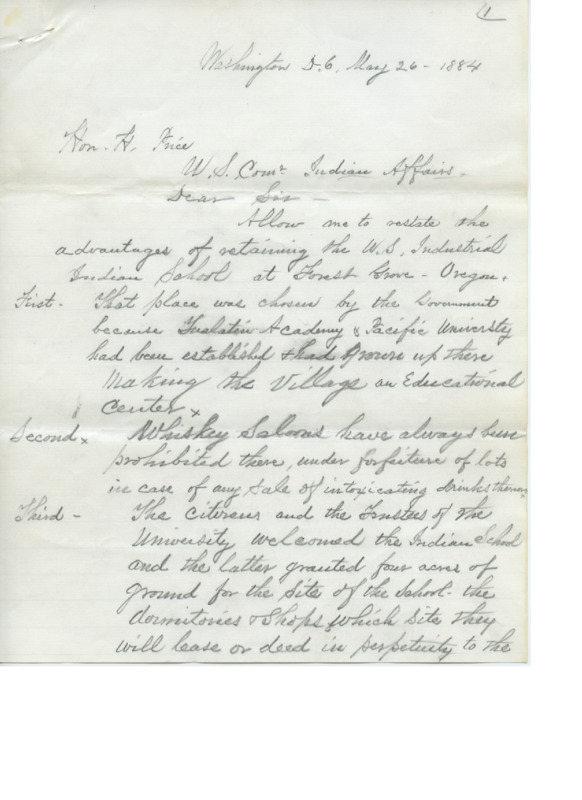 1
Washington D.C. May 26 - 1884
Hon. H. Price
U.S. Comr. Indian Affairs -
Dear Sir -
Allow me to restate the
advantages of retaining the U.S. Industrial
Indian School at Forest Grove - Oregon.
First - That place was chosen by the Government
because Tualatin Academy & Pacific University
had been established & had grown up there
making the Village an Educational
Center x
Second x Whiskey Saloons have always been
prohibited there, under forfeiture of lots
in case of any sale of intoxicating drinks thereon x
Third - The Citizens and the Trustees of the
University welcomed the Indian School
and the latter granted four acres of
ground for the site of the School - the
dormitories & Shops, which site they
will lease or deed in perpetuity to the